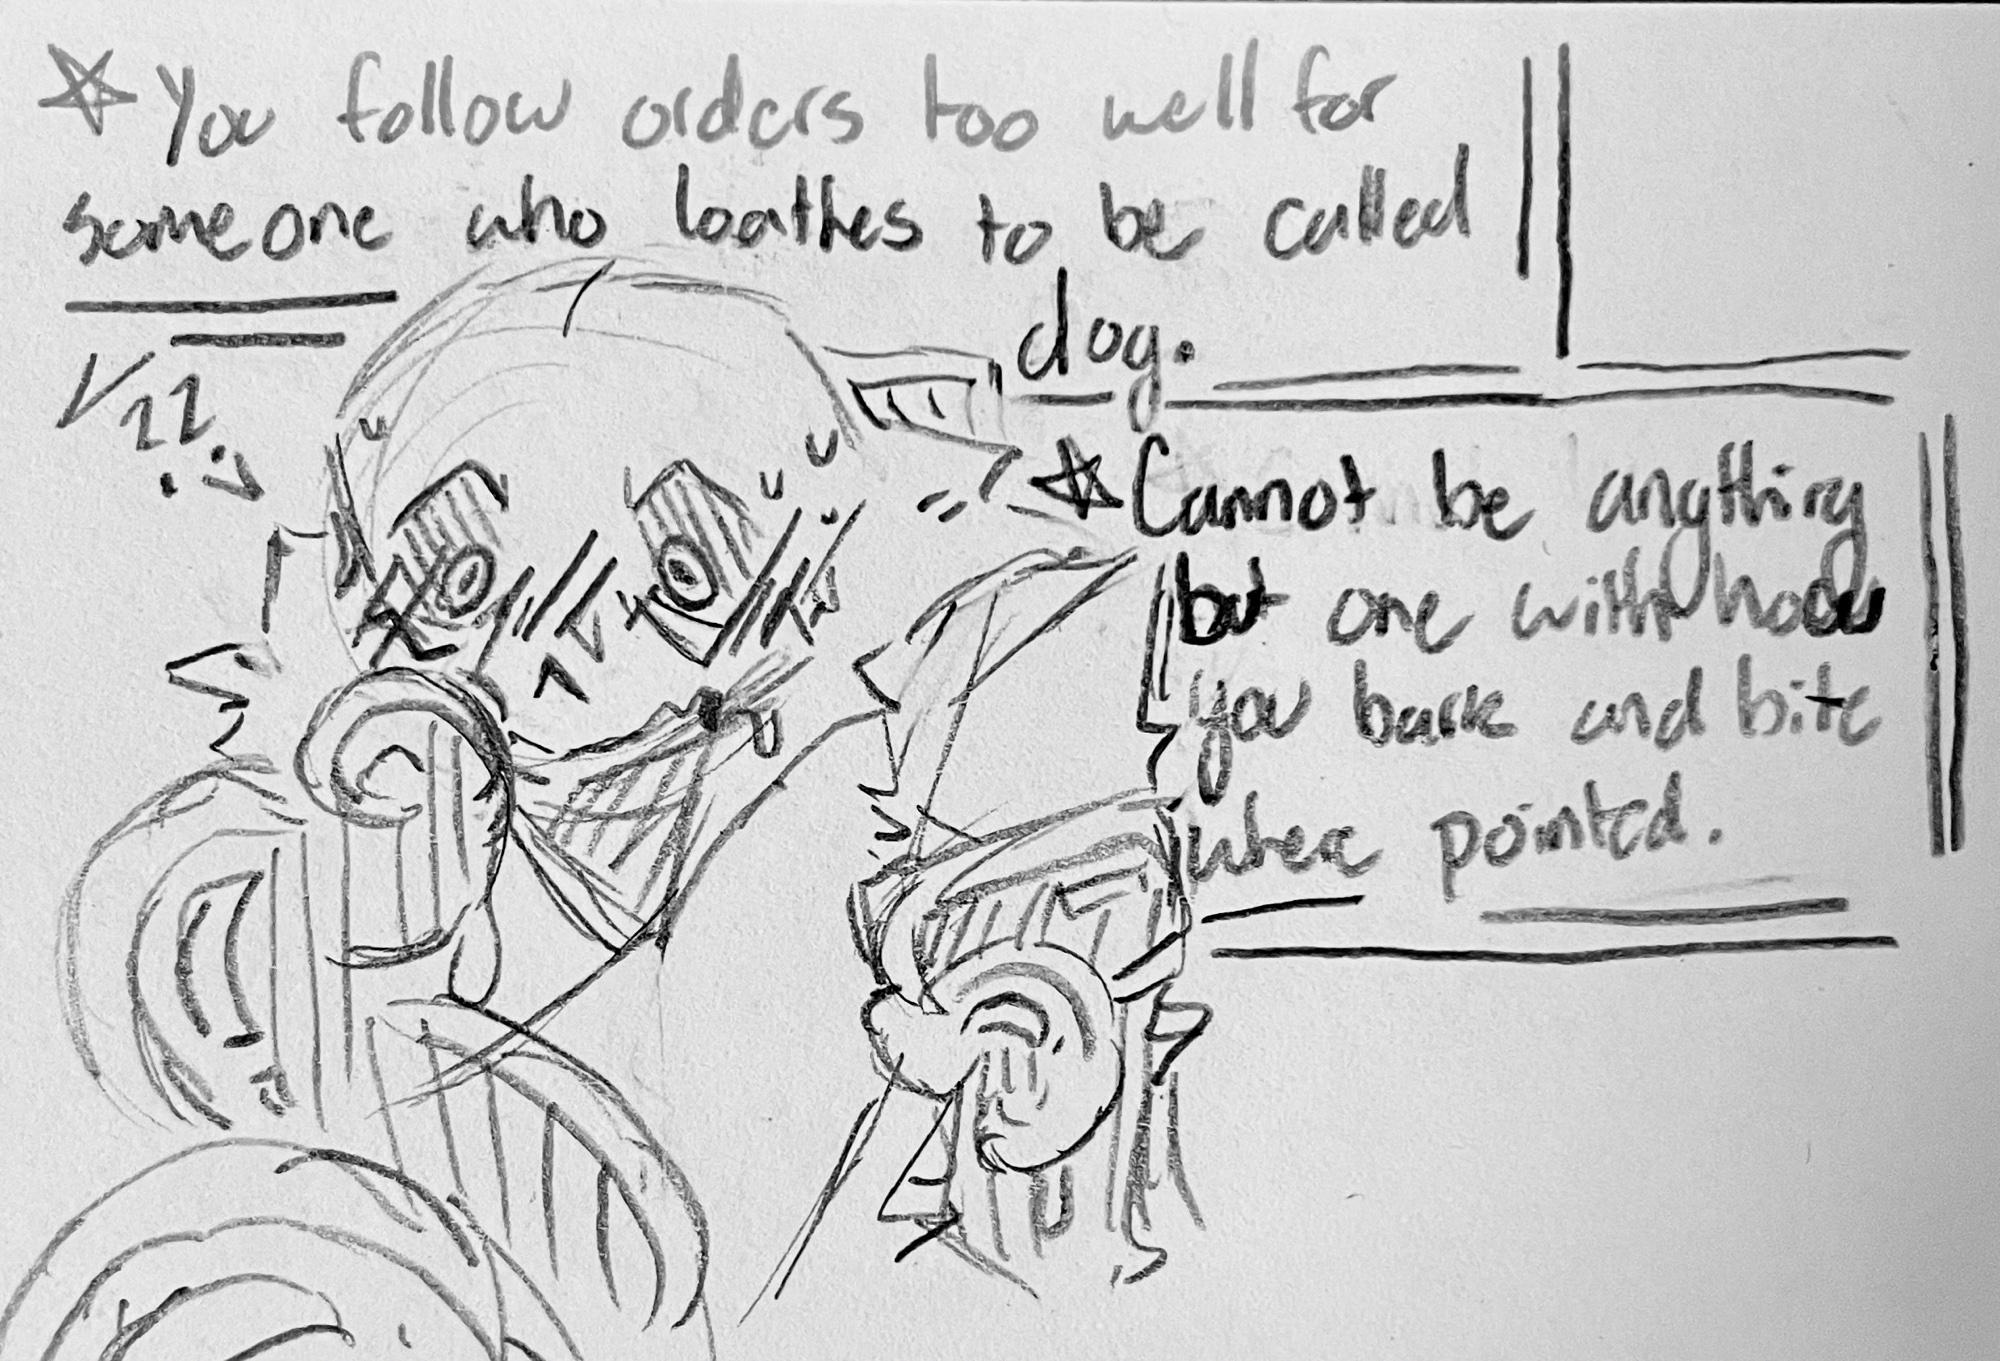 ☆ You follow orders too well for
someone who loathes to be called
dog.
☆ Cannot be anything
but one with how
you bark and bite
when pointed.